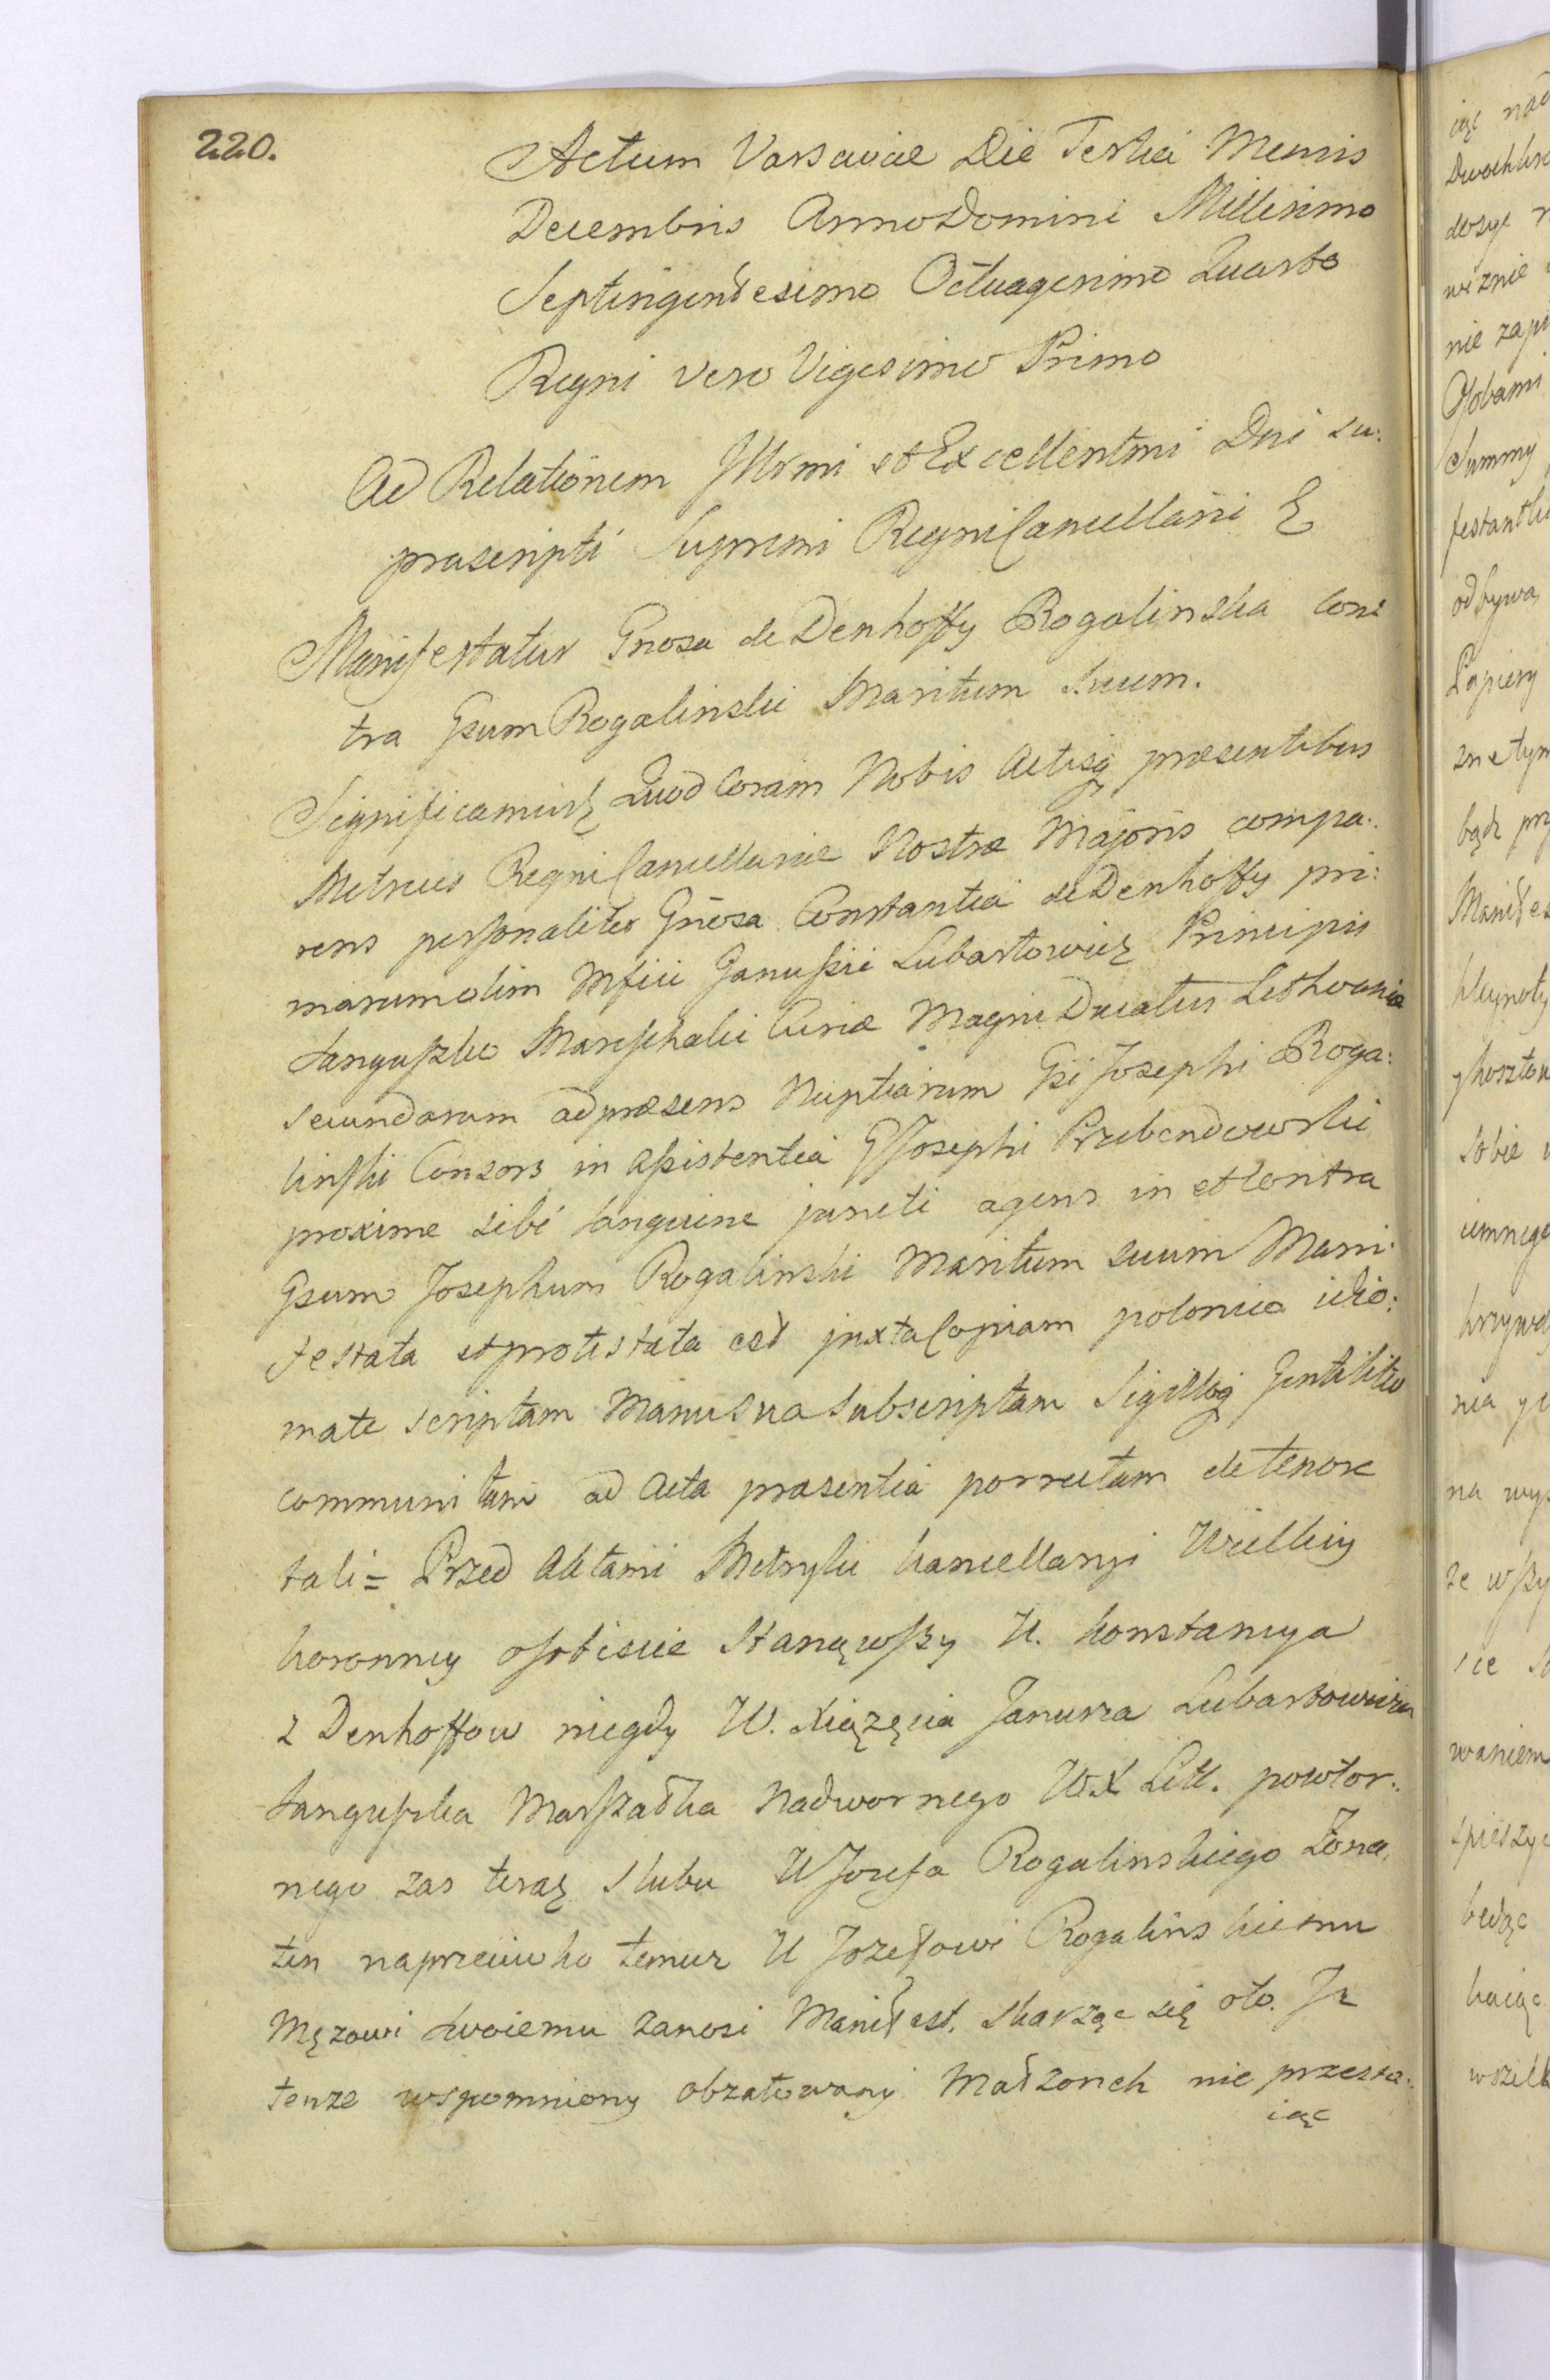 220.
Actum Varsaviae Die Tertia Mensis
Decembris Anno Domini Millesimo
Septingentesimo Octuagesimo Quarto
Regni vero Vigesimo Primo
Ad Relationem Illrmi et Excellentmi Dni su:
prascripti Supremi Regni Cancellarii
Manifestatur Gnosa de Denhoffy Rogalinska Con:
tra Gsum Rogalinski Maritum Suum.
Significamusq Quod Coram Nobis Actisq praesentibus
Metrices Regni Cancellariae Nostrae Majoris compa:
rens personaliter Gnosa Constantia de Denhoffy pri:
marum olim Mfici Janussii Lubartowicz Principis
Sanguszko Marschalci Curiae Magni Ducatus Lithvaniae
secundarum ad praesens Nuptiarum Gsi Josephi Roga:
linski Consors in assistentia G Josephi Przebendowski
proxime sibi sanguine juncti agens in et Contra
Gsum Josephum Rogalinski Maritum suum Mani:
festata et protestata est juxta Copiam polonico idio:
mate scriptam Manu Sua Subscriptam Sigilloq Gentilitio
communitam ad Acta praesentia porrectam de tenore
tali = Przed Aktami Metryki Kancellaryi Wielkiey
Koronney osobiscie Stanąwszy U. Konstancya
z Denhoffow niegdy W. Xiązęcia Janusza Lubartowicza
Sanguszka Marszałka Nadwornego W.X Litt. powtor:
nego zas teraz slubu U Jozefa Rogalinskiego Zona,
ten naprzeciwko temuz U Jozefowi Rogalinskiemu
Męzowi swoiemu zanosi Manifest. skarząc się oto. Iz
tenze wspomniony obzałowany Małzonek nie przesta:
iąc
iąc
dosyc
Osobami
Summy
odbywa
Papiery
bądz
sobie
na
waniem
spieszyc
będąc